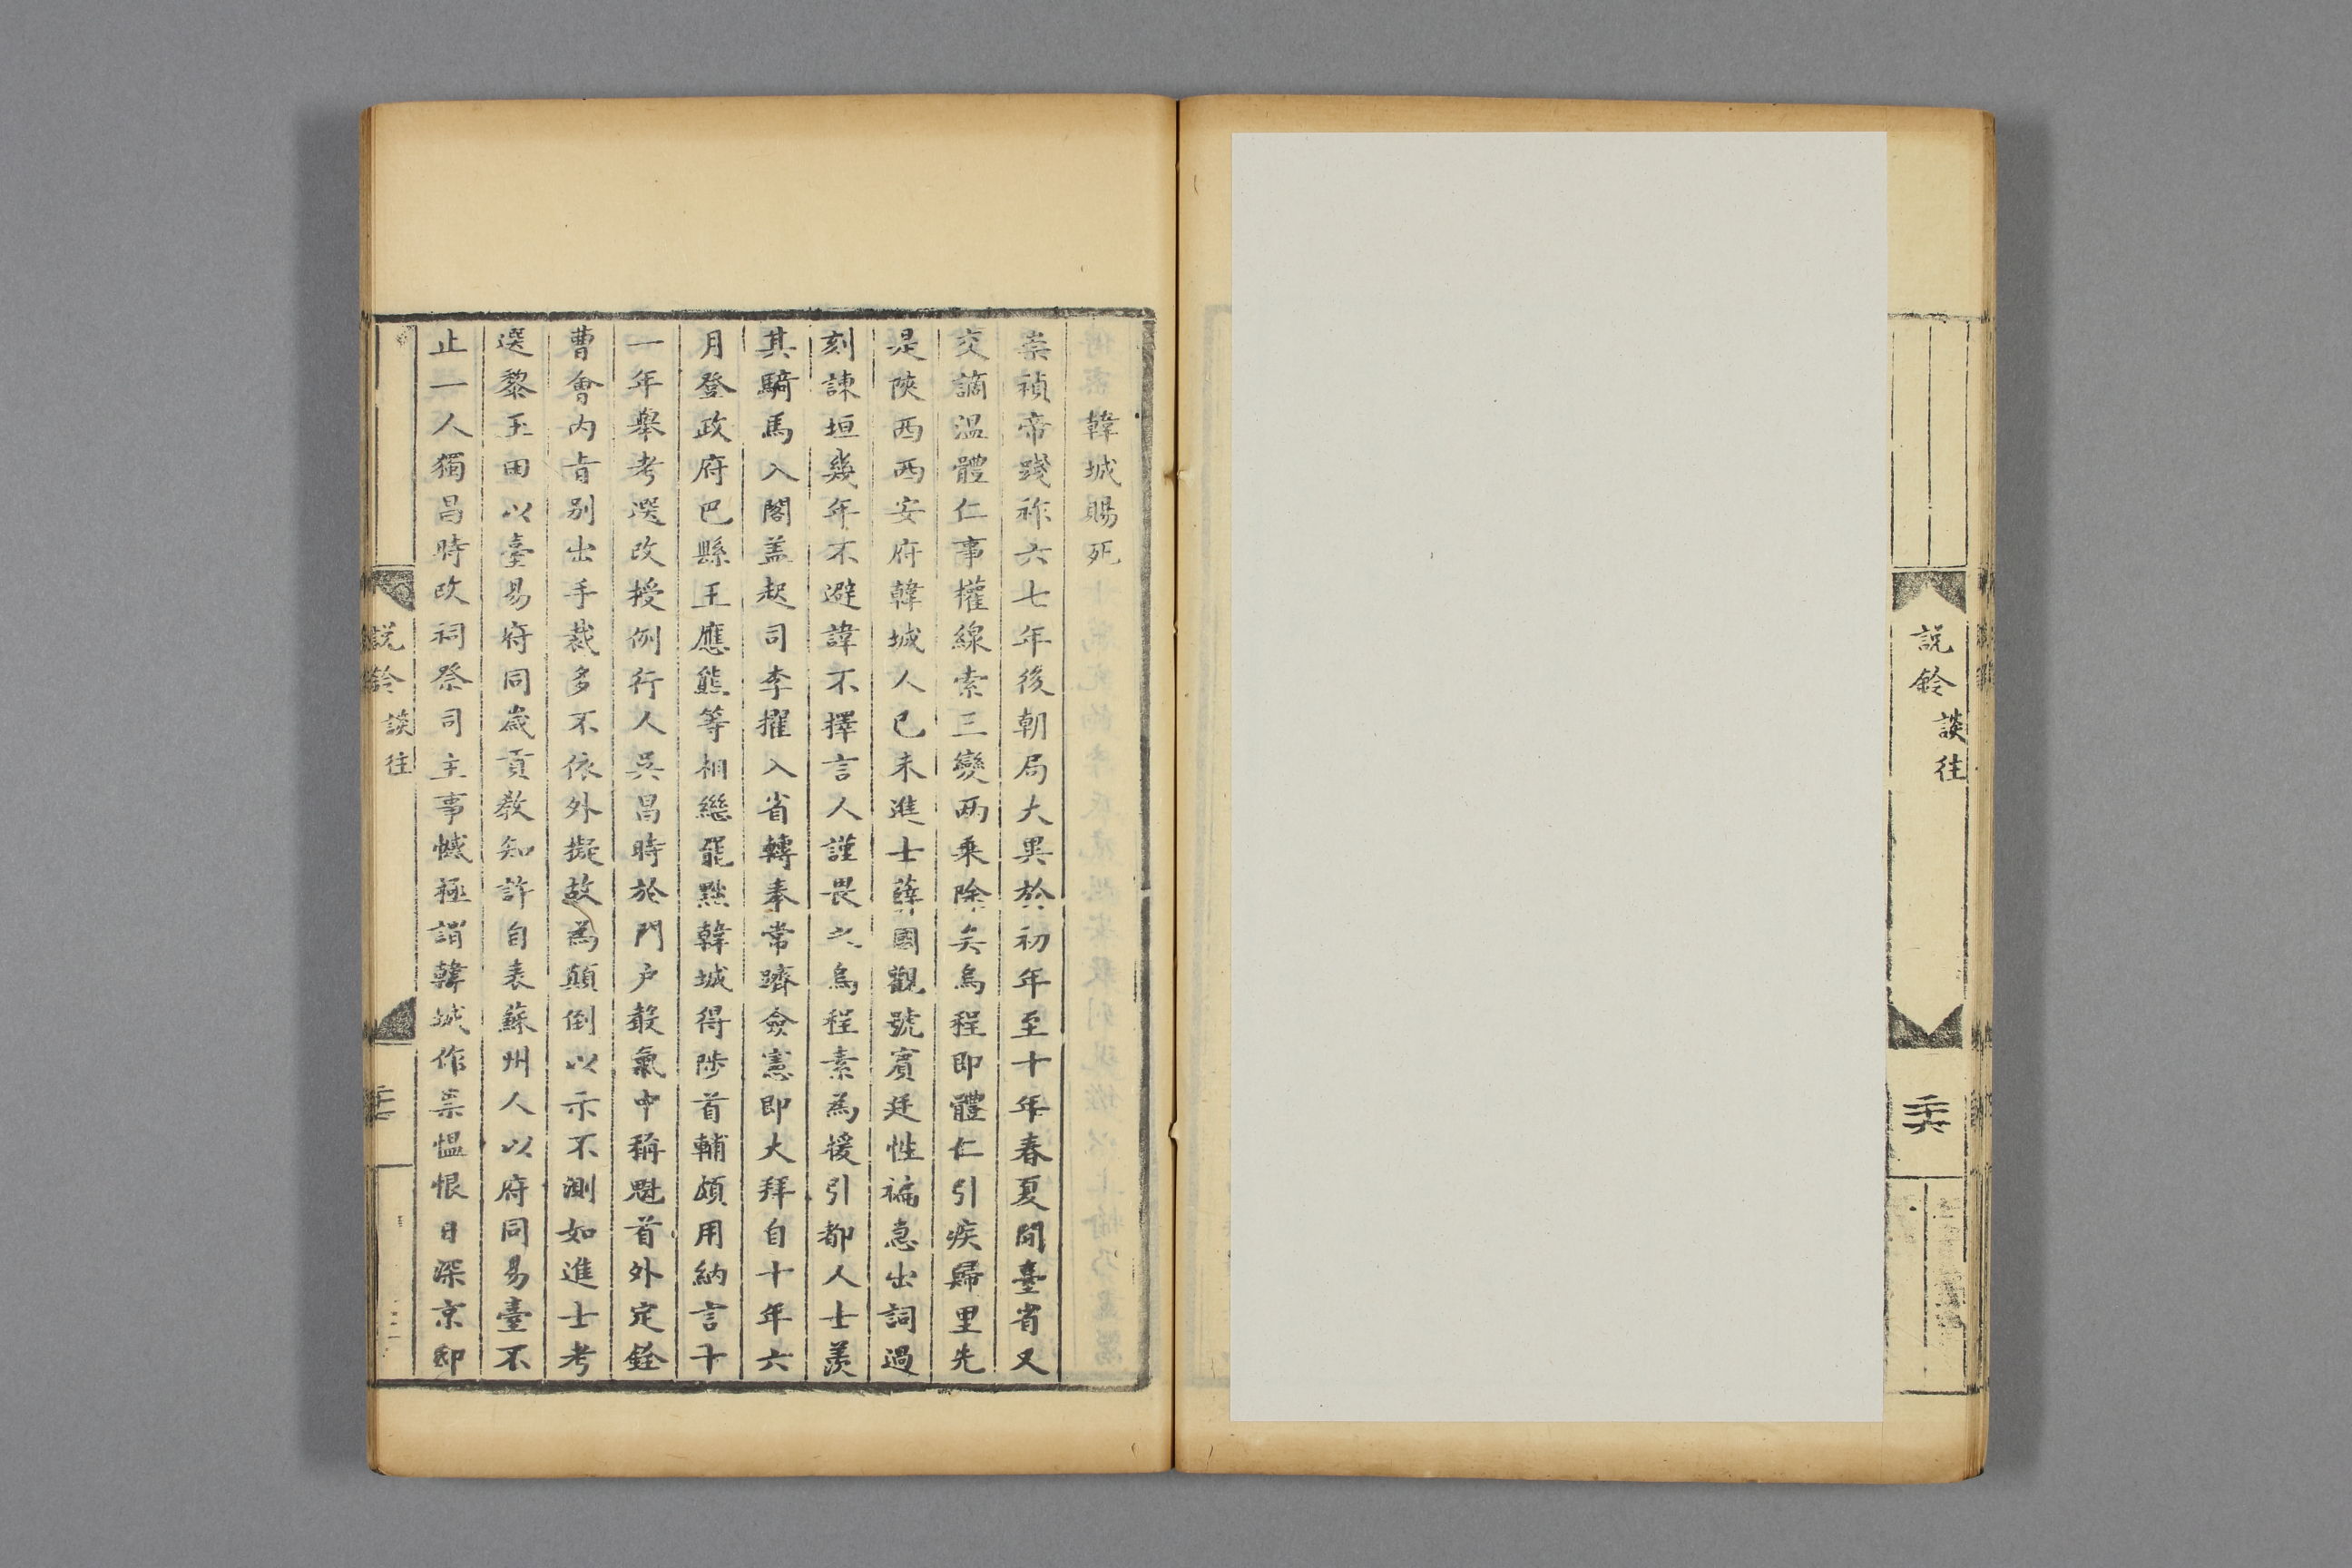 説鈴
談往
二十六
韓城賜死
崇禎帝踐祚六七年後朝局大異於初年至十年春夏間臺省又
交謫温體仁事權線索三變兩乗除矣烏程即體仁引疾歸里先
是陝西西安府韓城人已未進士薛國觀號賓廷性褊急出詞過
刻諫垣幾年不避諱不擇言人謹畏之烏程素為援引都人士羨
其騎馬入閣盖起司李擢入省轉奉常躋僉憲即大拜自十年六
月登政府巴縣王應熊等相繼罷黜韓城得陟首輔頗用納言十
一年舉考選改授例行人吳昌時於門户聲氣中稱魁首外定銓
曹會内㫖别出手裁多不依外擬故為顛倒以示不測如進士考
選黎玉田以臺易府同歲貢教知許自表蘇州人以府同易臺不
止一人獨昌時改祠祭司主事憾極謂韓城作祟愠恨日深京邸
説鈴
談往